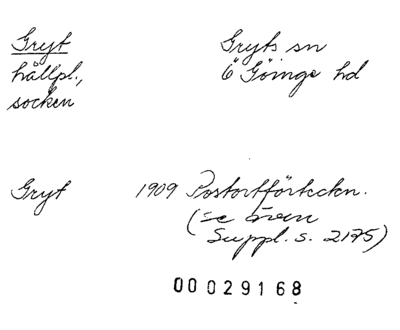 Gryt
hållpl.,
socken
Gryts sn
Ö Göinge hd
Gryt 1909 Postortförteckn.
(se även
Suppl. s. 2175)
00029168